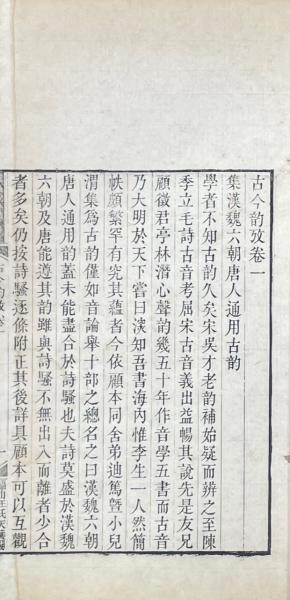 古今韵攷卷一
集漢魏六朝唐人通用古韵
學者不知古韵久矣宋吳才老韵補始疑而辨之至陳
季立毛詩古音考屈宋古音義出益暢其說先是友兄
顧徵君亭林潛心聲韵幾五十年作音學五書而古音
乃大明於天下嘗曰淡知吾書海內惟李生一人然簡
帙頗繁罕有究其蘊者今依顧本同舍弟迪篤曁小兒
渭集爲古韵僅如音論舉十部之總名之曰漢魏六朝
唐人通用韵蓋未能盡合於詩騷也夫詩莫盛於漢魏
六朝及唐能遵其韵雖與詩騷不無出入而離者少合
者多矣仍按詩騷逐條附正其後詳具顧本可以互觀